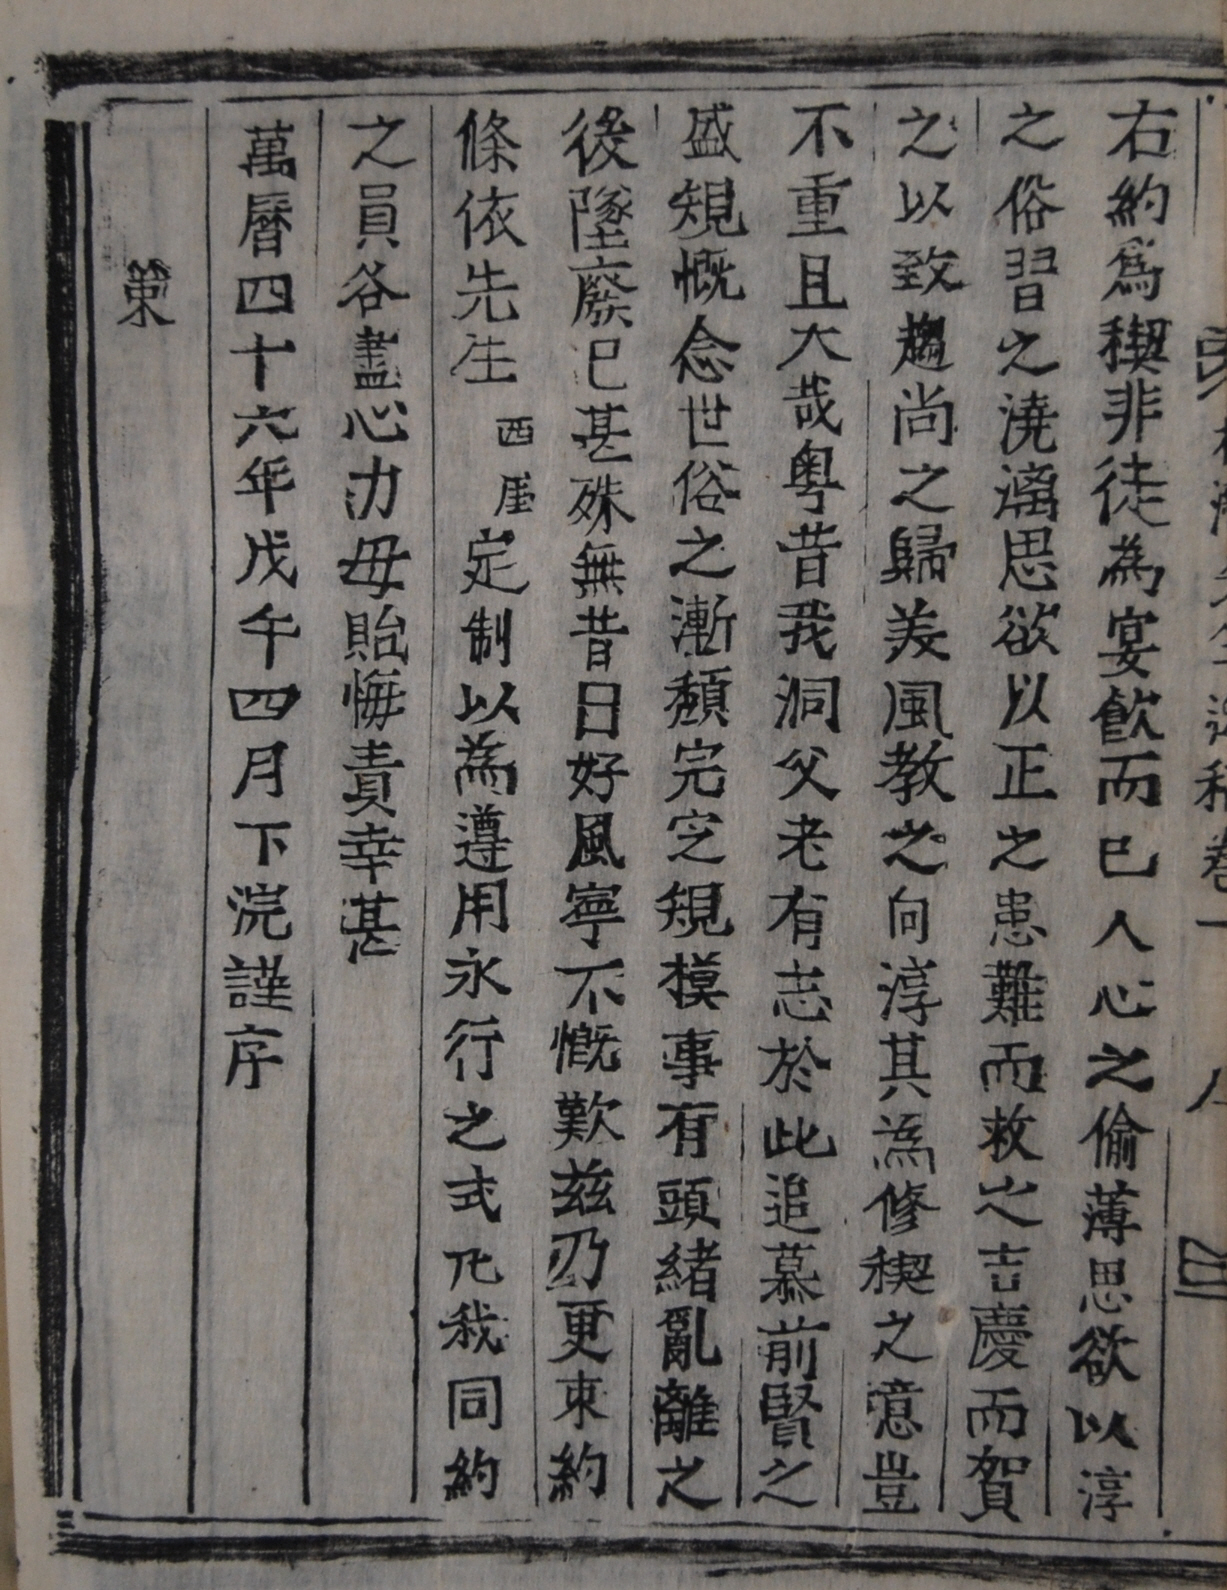 右約爲稧非徒為宴飮而已人心之偷薄思欲以淳
之俗習之澆漓思欲以正之患難而救之吉慶而賀
之以致趨尚之歸美風教之向淳其為修稧之意豈
不重且大哉粤昔我洞父老有志於此追慕前賢之
盛規慨念世俗之漸頹完定規模事有頭緖亂離之
後墜廢已甚殊無昔日好風寧不慨歎玆乃更束約
條依先生西厓定制以為遵用永行之式凡我同約
之員各盡心力毋貽悔責幸甚
萬曆四十六年戊午四月下浣謹序
策